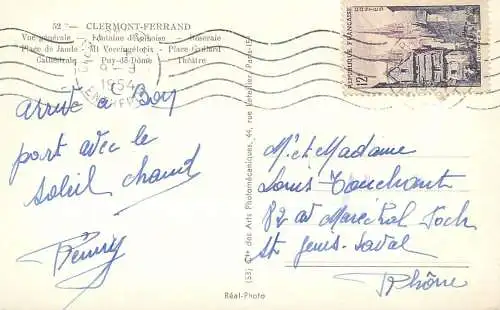 52 - CLERMONT-FERRAND
Vue générale - Fontaine d'Amboise - Roseraie
Place de Jaude - Mt Vercingétorix - Place Gaillard
Cathédrale - Puy-de-Dôme - Théâtre
1954
arrivé à Bon
port avec le
soleil chaud
Mr et Madame
Louis Touchant
82 av Maréchal Foch
St Genis-Laval
Rhône
(53) Cie des Arts Photomécaniques, 44, rue Letellier, Paris-15e
Réal-Photo
REPUBLIQUE FRANÇAISE
POSTES
12F
QUIMPER